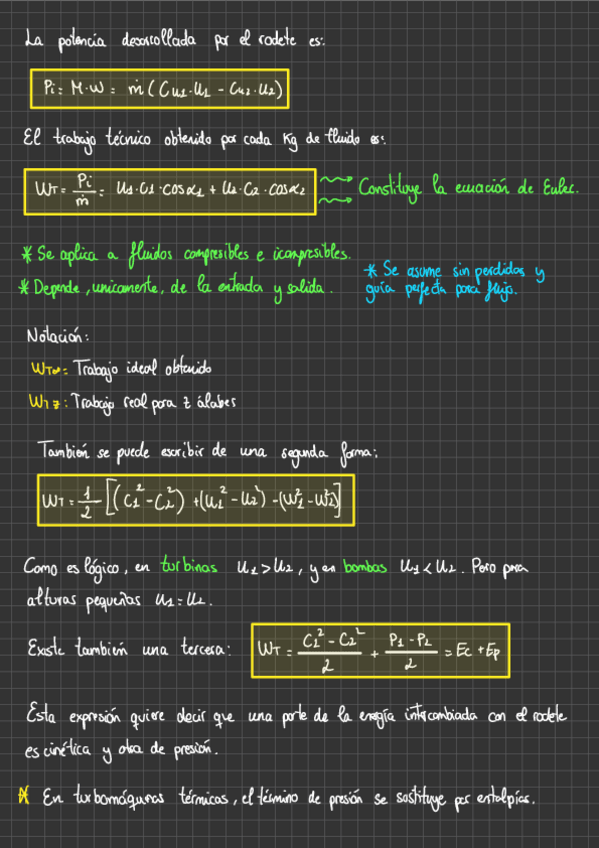 La potencia desarrollada por el rodete es:
Pi = M·w = ṁ (Cu1·u1 - Cu2·u2)
El trabajo técnico obtenido por cada Kg de fluido es:
WT = Pi/ṁ = u1·C1·cosα1 + u2·C2·cosα2
Constituye la ecuación de Euler.
* Se aplica a fluidos compresibles e icompresibles.
* Depende, unicamente, de la entrada y salida.
* Se asume sin perdidas y
guía perfecta para flujo.
Notación:
WT∞: Trabajo ideal obtenido
WTz: Trabajo real para z álabes
También se puede escribir de una segunda forma:
WT = 1/2 [(C1² - C2²) + (u1² - u2²) - (W1² - W2²)]
Como es lógico, en turbinas u1 > u2, y en bombas u1 < u2. Pero para
alturas pequeñas u1 = u2.
Existe también una tercera:
WT = (C1² - C2²)/2 + (P1 - P2)/2 = Ec + Ep
Esta expresión quiere decir que una parte de la energía intercambiada con el rodete
es cinética y otra de presión.
* En turbomáquinas térmicas, el término de presión se sustituye por entalpías.